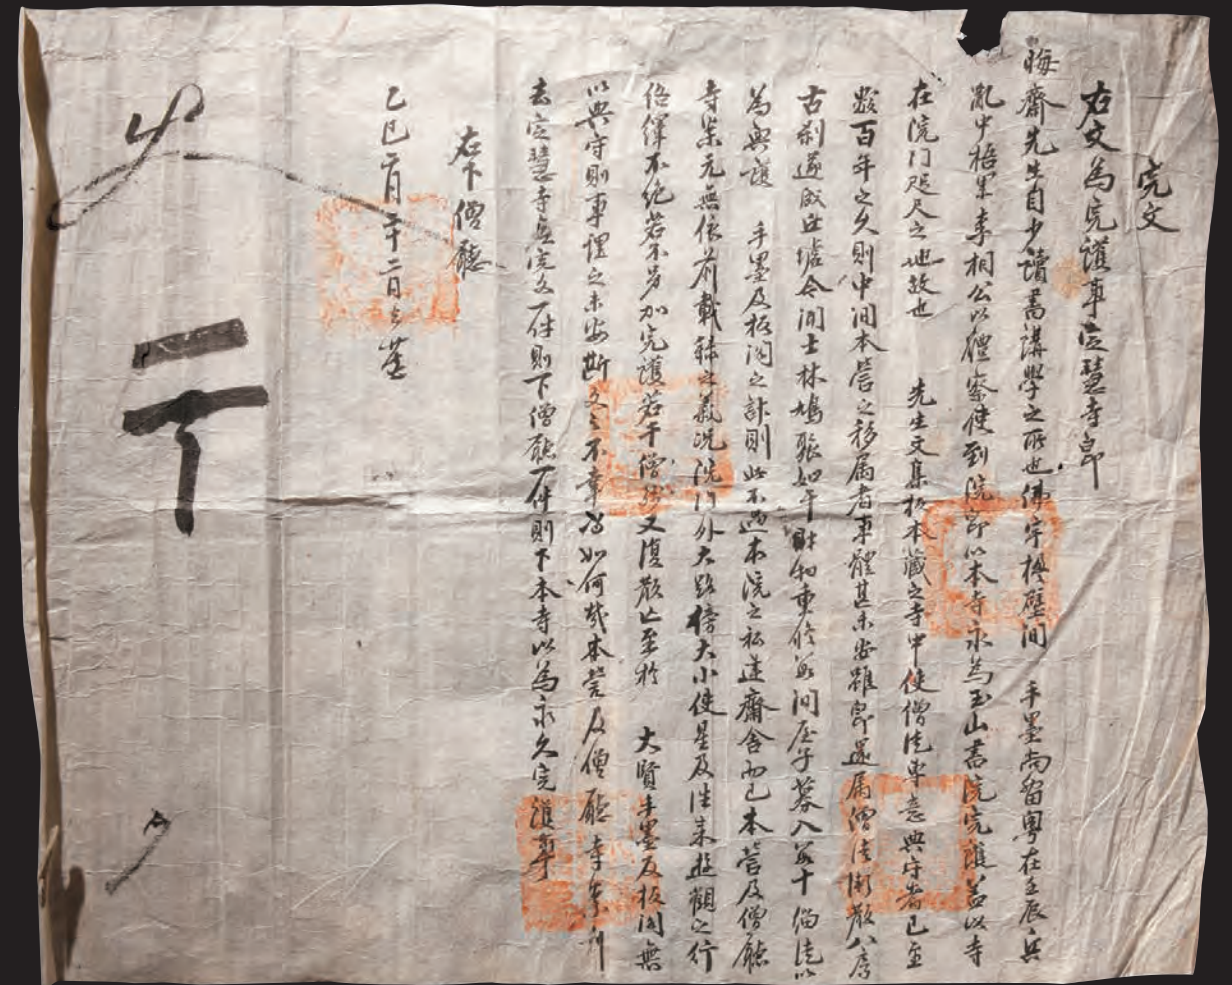 完文
右文爲完護事定慧寺卽
晦齋先生自少讀書講學之所也佛宇楼壁間 手墨尚留粤在壬辰兵
亂中梧里李相公以體察使到院卽以本寺永爲玉山書院完護盖以寺
在院门咫尺之地故也 先生文集板本藏之寺中使僧徒專意典守者已至
数百年之久则中间本營之移屬者事體甚未安雖卽還屬僧徒漸散八房
古刹遂成丘墟今间士林鳩聚如干財物重修数间屋子募入数十僧徒以
爲典護 手墨及板閣之計則此不過本院之私建齋舍而已本營及僧廳
寺案元無依前載録之義况院门外大路傍大小使星及往来遊觀之行
絡繹不絶若不另加完護若干僧徒又復散亡至於 大賢手墨及板閣無
以典守則事理之未安斯文之不幸當如何哉本營及僧廳寺案
去定慧寺是遣完文一件則下僧廳一件則下本寺以爲永久完護事
右下僧廳
乙巳二月二十二日